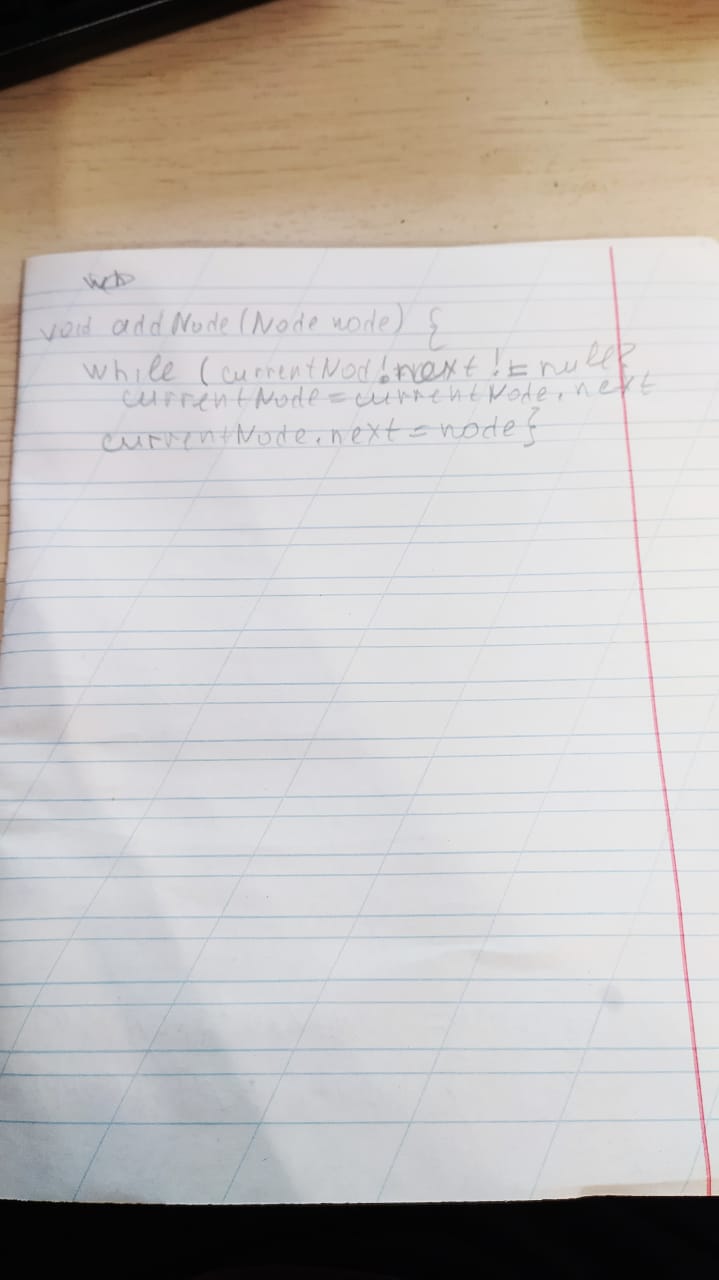 void addNode(Node node) {
while (currentNod!next != null{
currentNode=currentNode.next
currentNode.next = node}